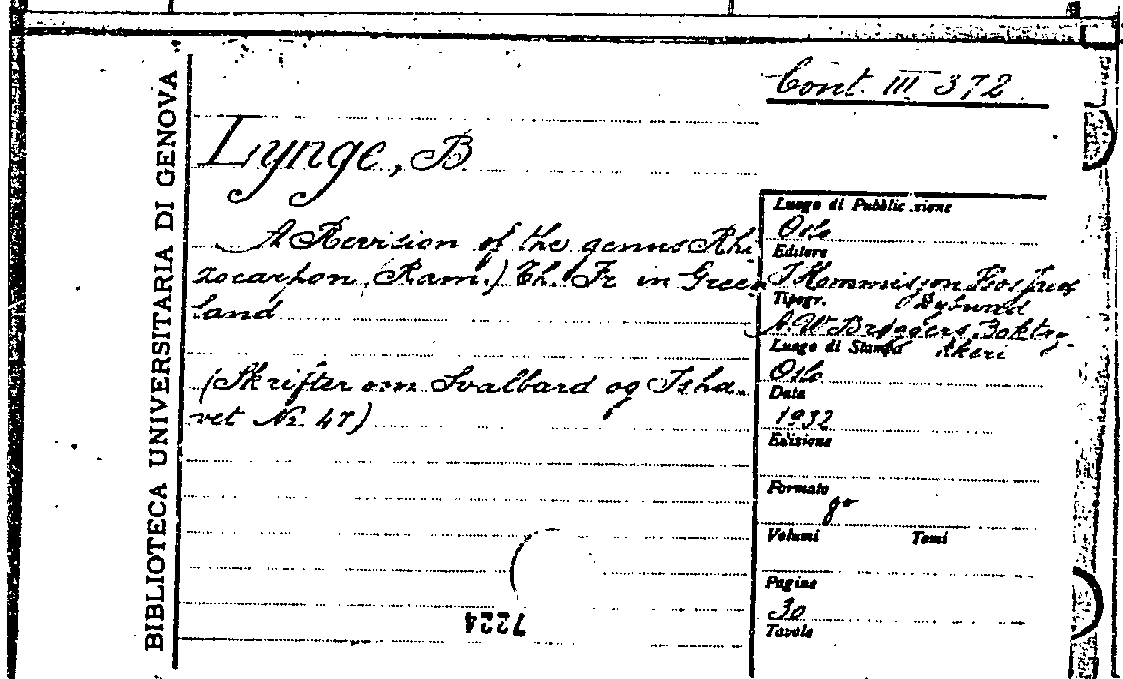 BIBLIOTECA UNIVERSITARIA DI GENOVA
Cont. III 372
Lynge, B.
A Revision of the genus Rhi
zocarpon, Ram.) Th. Fr. in Green
land
(Skrifter om Svalbard og Isha-
vet Nr. 47)
7224
Luogo di Pubblicazione
Oslo
Editore
I Kommisjon Hos Jacob
Dybwad
Tipogr.
A. W. Brøggers Boktry-
kkeri
Luogo di Stampa
Oslo
Data
1932
Edizione
Formato
8º
Volumi Tomi
Pagine
30
Tavole